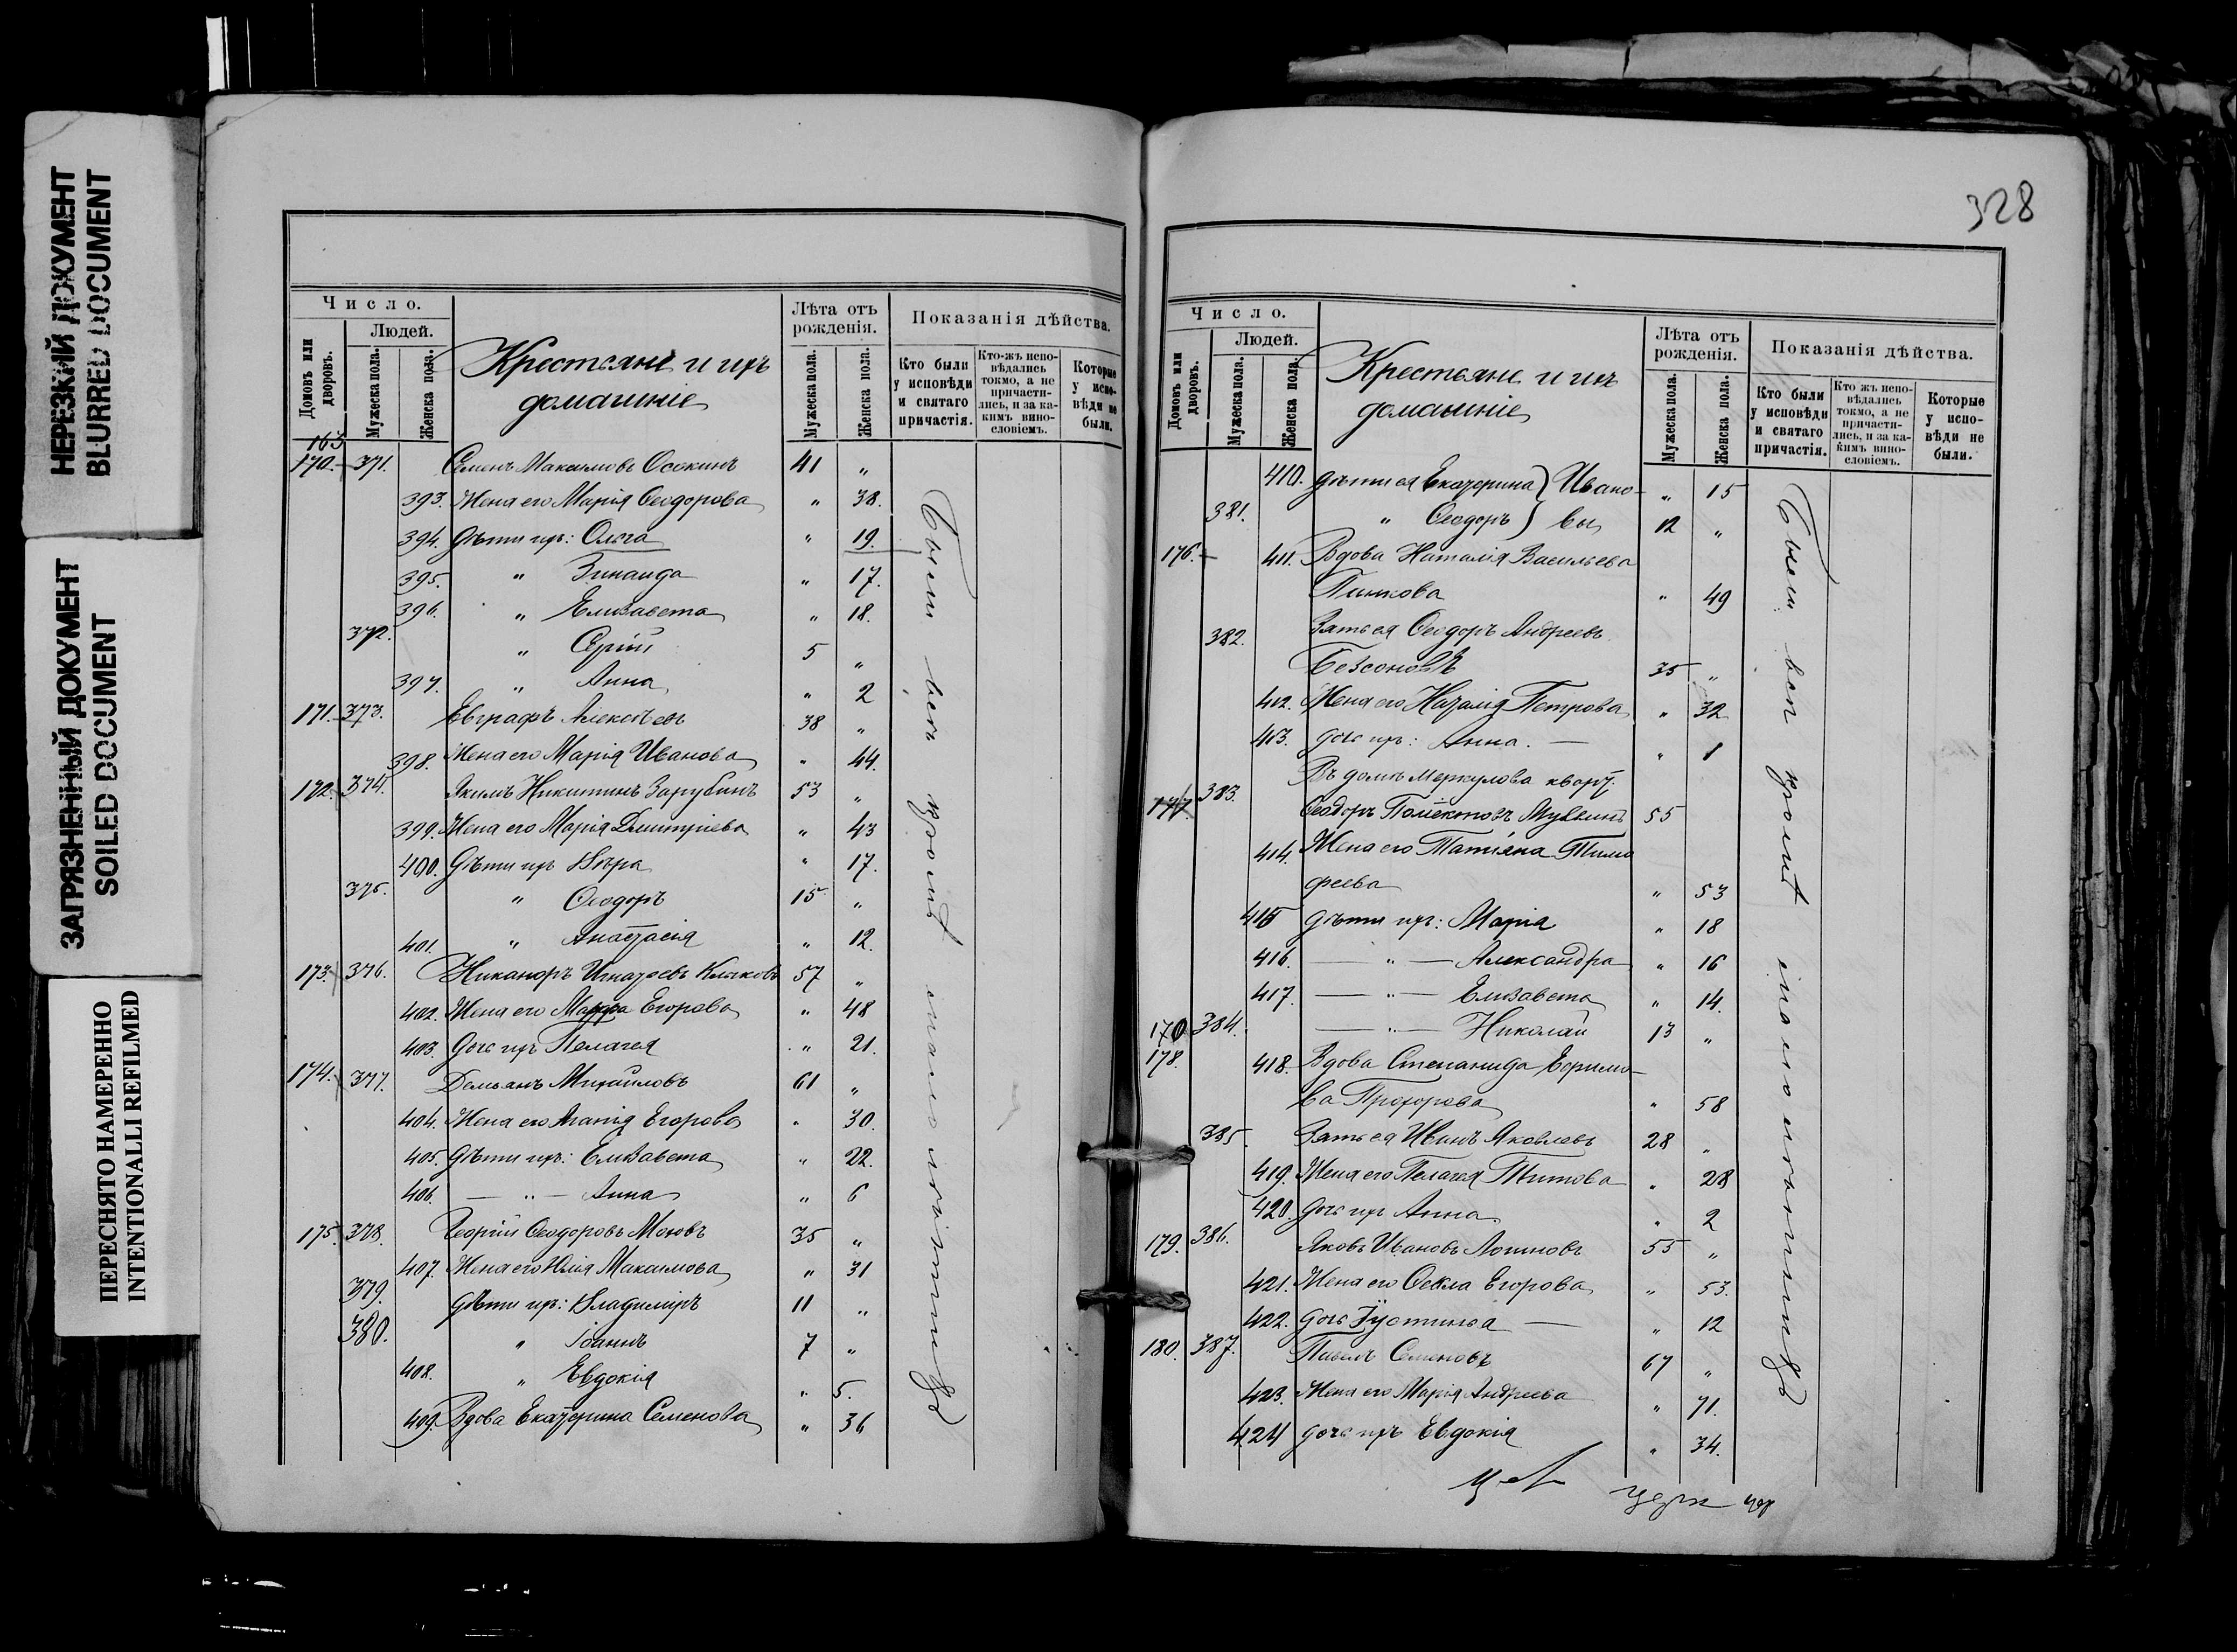 НЕРЕЗКИЙ ДОКУМЕНТ
BLURRED DOCUMENT
ЗАГРЯЗНЕННЫЙ ДОКУМЕНТ
SOILED DOCUMENT
ПЕРЕСНЯТО НАМЕРЕННО
INTENTIONALLI REFILMED
Число.
Людей.
Домовъ или дворовъ.
Мужеска пола.
Женска пола.
Крестьяне и ихъ
домашніе
Лѣта отъ рожденія.
Мужеска пола.
Женска пола.
Показанія дѣйства.
Кто были у исповѣди и святаго причастія.
Кто-жъ исповѣдались токмо, а не причастились, и за какимъ винословіемъ.
Которые у исповѣди не были.
163
170. 371. Семенъ Максимовъ Осокинъ 41 "
393. Жена его Марія Ѳеодорова " 38.
394. Дѣти ихъ: Ольга " 19.
395. " Зинаида " 17.
396. " Елизавета " 18.
372. " Сергій 5 "
397. " Анна " 2
171. 373. Евграфъ Алексѣевъ 38 "
398. Жена его Марія Иванова " 44.
172. 374. Якимъ Никитинъ Зарубинъ 53 "
399. Жена его Марія Димитріева " 43
400. Дѣти ихъ Вѣра " 17.
375. " Ѳеодоръ 15 "
401. " Анастасія " 12.
173. 376. Никаноръ Игнатьевъ 57 "
402. Жена его Марфа Егорова " 48
403. Дочь ихъ Пелагея " 21.
174. 377. Демьянъ Михайловъ 61 "
404. Жена его Егорова " 30.
405. Дѣти ихъ: Елизавета " 22.
406. — " — Анна " 6
175. 378. Георгій Ѳеодоровъ 35 "
407. Жена его Юлія Максимова " 31
379. Дѣти ихъ: Владиміръ 11 "
380. " Іоаннъ 7 "
408. " Евдокія " 5.
409. Вдова Екатерина Семенова " 36
Были всѣ кромѣ малолѣтнихъ
328
Число.
Людей.
Домовъ или дворовъ.
Мужеска пола.
Женска пола.
Крестьяне и ихъ
домашніе
Лѣта отъ рожденія.
Мужеска пола.
Женска пола.
Показанія дѣйства.
Кто были у исповѣди и святаго причастія.
Кто жъ исповѣдались токмо, а не причастились, и за какимъ винословіемъ.
Которые у исповѣди не были.
410. Дѣти ея Екатерина } Ивано- " 15
381. " Ѳеодоръ } вы 12 "
176. 411. Вдова Наталія Васильева
Пинкова " 49
382. Зять ея Ѳеодоръ Андреевъ
Безсоновъ 35 "
412. Жена его Наталія Петрова " 32
413. Дочь ихъ: Анна. — " 1
Въ домѣ Меркулова кварт.
177. 383. Ѳеодоръ 55
414. Жена его Татіана Тимо
феева " 53
415 Дѣти ихъ: Марія " 18
416. — " — Александра " 16
417. — " — Елизавета " 14.
170 384. — " — Николай 13 "
178. 418. Вдова Степанида Ефимо-
ва Прохорова " 58
385. Зять ея Иванъ Яковлевъ 28 "
419. Жена его Пелагея Титова " 28
420. Дочь ихъ Анна " 2
179. 386. Яковъ Ивановъ Логиновъ 55 "
421. Жена его Ѳекла Егорова " 53.
422. Дочь Іустинья — " 12
180. 387. Павелъ Семеновъ 67 "
423. Жена его Марія Андреева " 71.
424 Дочь ихъ Евдокія " 34.
Были всѣ кромѣ малолѣтнихъ